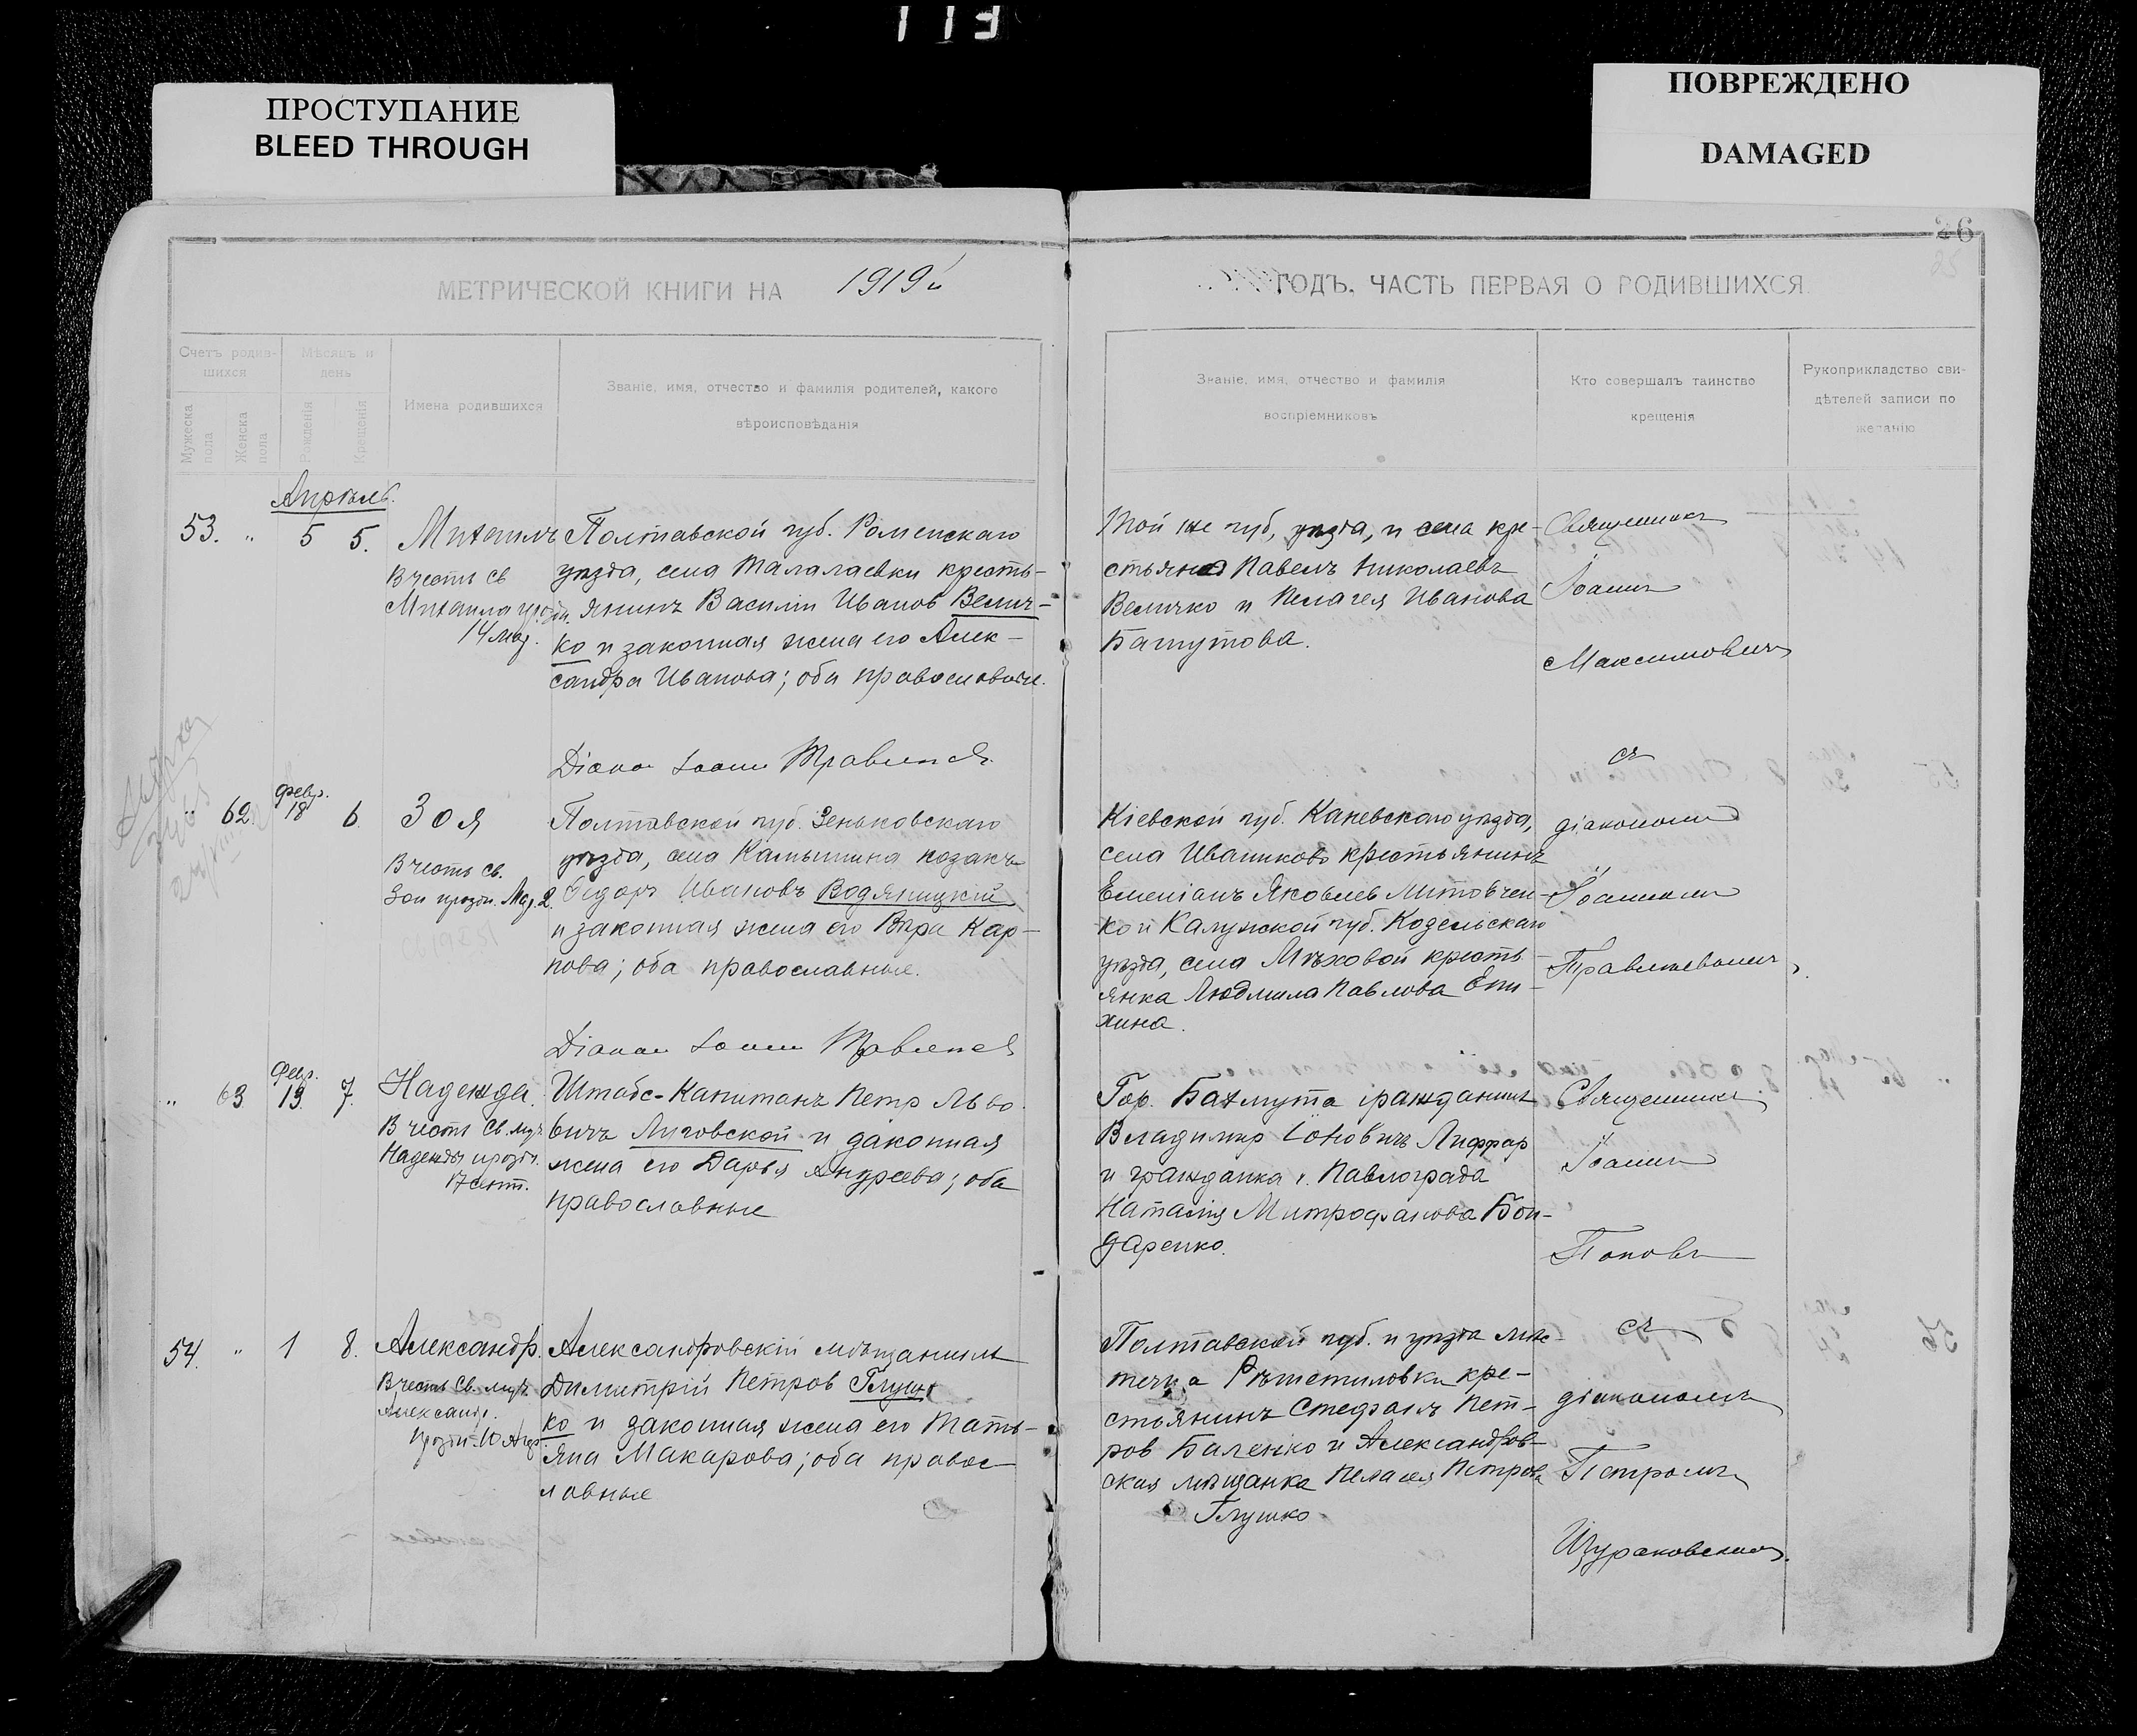 113
ПРОСТУПАНИЕ
BLEED THROUGH
ПОВРЕЖДЕНО
DAMAGED
26
25
МЕТРИЧЕСКОЙ КНИГИ НА 1919й
ГОДЪ, ЧАСТЬ ПЕРВАЯ О РОДИВШИХСЯ
Счетъ родив-
шихся
Мужеска
пола
Женска
пола
Мѣсяцъ и
день
Рожденія
Крещенія
Имена родившихся
Званіе, имя, отчество и фамилія родителей, какого
вѣроисповѣданія
Званіе, имя, отчество и фамилія
воспріемниковъ
Кто совершалъ таинство
крещенія
Рукоприкладство сви-
дѣтелей записи по
желанію
Апрѣль.
53. " 5 5.
Михаилъ
В честь св
Михаила
Полтавской губ. Роменскаго
уѣзда, села Талалаевки кресть-
янинъ Василій Иванов Велич-
ко и законная жена его Алек-
сандра Иванова; оба православные.
Той же губ, уѣзда, и села кре-
стьяне Павелъ Николаевъ
Величко и Пелагея Иванова
Башутова.
Священникъ
Іоаннъ
Максимовичъ
" 62. Февр. 18 6
Зоя
В честь св.
Зои праздн. Мая 2.
Полтавской губ. Зеньковскаго
уѣзда, села Камышина козакъ
Ѳедоръ Ивановъ Водяницкій
и законная жена его Вѣра Кар-
пова; оба православные.
Кіевской губ. Каневскаго уѣзда,
села Иванково крестьянинъ
Емеліанъ Яковлев Литовчен-
ко и Калужской губ. Козельскаго
уѣзда, села Мѣховой кресть-
янка Людмила Павлова Епи-
хина.
съ
діакономъ
Іоанномъ
" 63 Февр. 13. 7.
Надежда.
В честь Св. муч
Надежды праздн.
17 сент.
Штабс-Капитанъ Петр Льво-
вичъ Луговской и законная
жена его Дарья Андреева; оба
православные
Гор. Бахмута гражданинъ
Владимир Іоновичъ Лиффар
и гражданка г. Павлограда
Наталія Митрофанова Бон-
даренко.
Священникъ
Іоаннъ
Поповъ
54. " 1 8.
Александр.
В честь Св. муч.
Александр.
Праздн. 10 Апр.
Александровскій мѣщанинъ
Димитрій Петров Глуш-
ко и законная жена его Тать-
яна Макарова; оба правос-
лавные
Полтавской губ. и уѣзда мѣс-
течка Рѣшетиловки кре-
стьянинъ Стефанъ Пет-
ров Баленко и Александров-
ская мѣщанка Пелагея Петрова
Глушко
съ
діакономъ
Петромъ
Щураковскимъ.